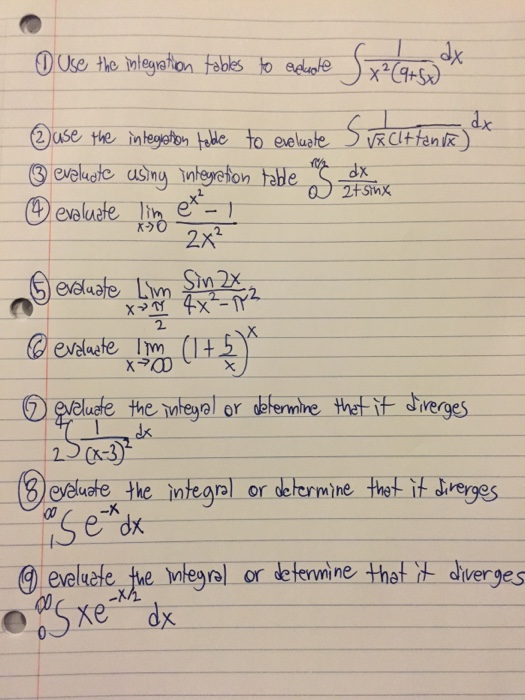 ① Use the integration tables to evaluate ∫ 1/(x²(9+5x)) dx
② use the integration table to evaluate ∫ 1/(√x(1+tan√x)) dx
③ evaluate using integration table ∫₀^(π/2) dx/(2+sinx)
④ evaluate lim x→0 (e^(x²) - 1)/(2x²)
⑤ evaluate Lim x→π/2 (Sin 2x)/(4x²-π²)
⑥ evaluate lim x→∞ (1+5/x)^x
⑦ evaluate the integral or determine that it diverges
₂∫⁴ 1/(x-3)² dx
⑧ evaluate the integral or determine that it diverges
₁∫^∞ e^(-x) dx
⑨ evaluate the integral or determine that it diverges
₀∫^∞ xe^(-x/2) dx